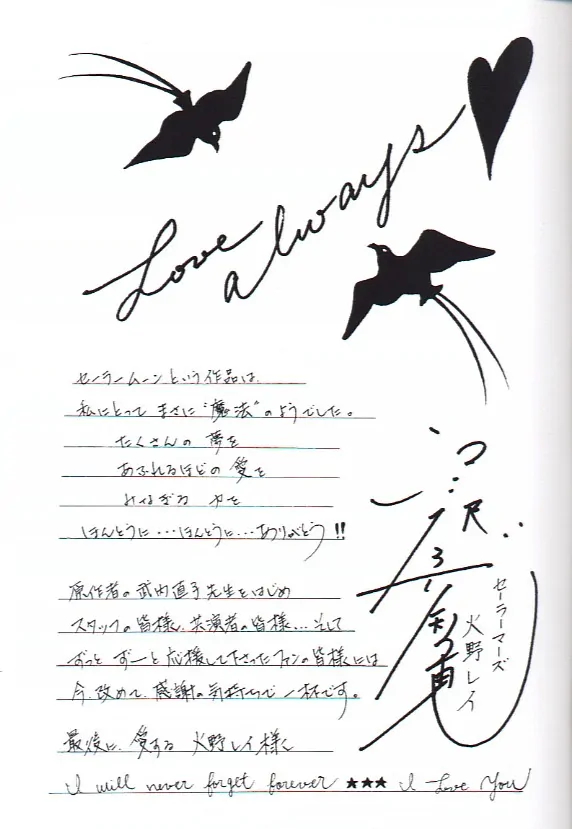 Love
always
セーラームーンという作品は、
私にとって まさに"魔法"のようでした。
たくさんの 夢を
あふれるほどの 愛を
みなぎる 力を
ほんとうに…ほんとうに…ありがとう!!
原作者の 武内直子先生をはじめ
スタッフの皆様、共演者の皆様…そして
ずっと ずーと 応援して下さったファンの皆様には
今、改めて、感謝の気持ちで一杯です。
最後に、愛する 火野レイ様へ
I will never forget forever ★★★ I Love You
セーラーマーズ
火野レイ